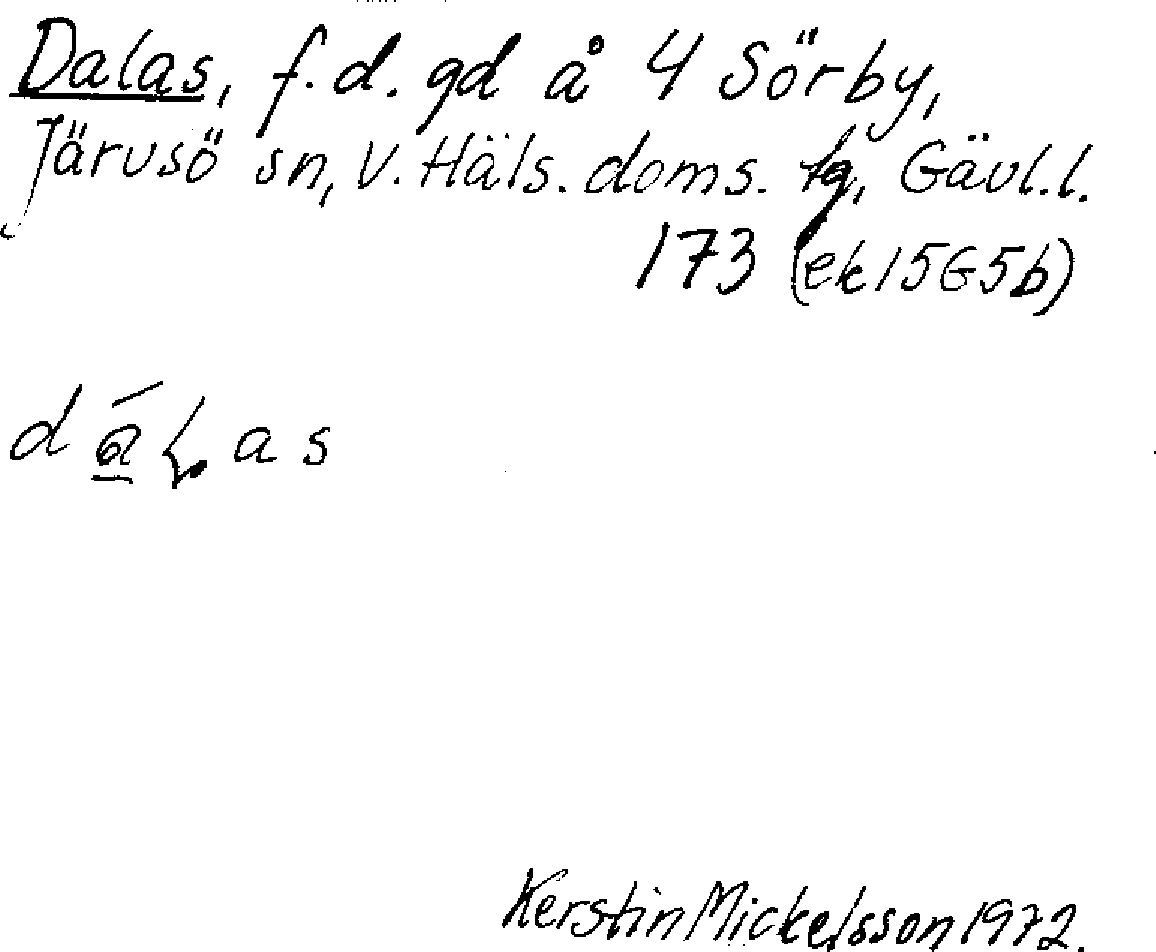 Dalas, f.d. gd å 4 Sörby,
Järvsö sn, V. Häls. doms. tg, Gävl.l.
173 (ek 15G5b)
Kerstin Mickelsson 1972.